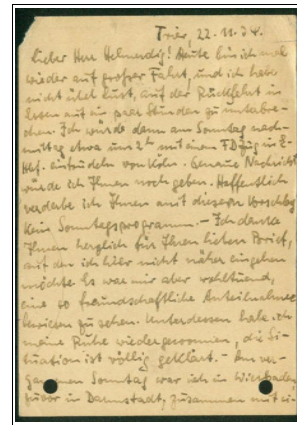 Trier, 22.11.34.
Lieber Herr Helmerdig! Heute bin ich mal
wieder auf großer Fahrt, und ich habe
nicht übel Lust, auf der Rückfahrt in
Essen auf ein paar Stunden zu unterbre-
chen. Ich würde dann am Sonntag nach-
mittag etwa um 2h mit einem FDZug in E-
Hbf. eintrudeln von Köln. Genaue Nachricht
würde ich Ihnen noch geben. Hoffentlich
verderbe ich Ihnen mit diesem Vorschlag
kein Sonntagsprogramm. – Ich danke
Ihnen herzlich für Ihren lieben Brief,
auf den ich hier nicht näher eingehen
möchte. Es war mir aber wohltuend,
eine so freundschaftliche Anteilnahme
bewiesen zu sehen. Unterdessen habe ich
meine Ruhe wiedergewonnen, die Si-
tuation ist völlig geklärt. – Am ver-
gangenen Sonntag war ich in Wiesbaden,
zuvor in Darmstadt, zusammen mit ei-